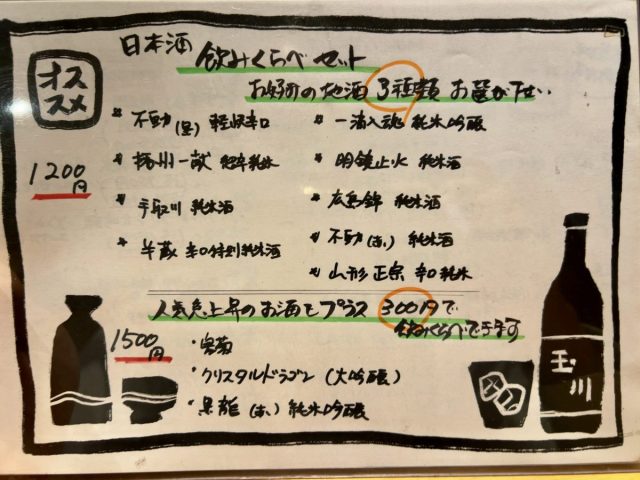 オススメ
日本酒 飲みくらべセット
お好みの地酒 3種類 お選び下さい
* 不動(黒) 超辛口
* 一滴入魂 純米吟醸
1200円
* 播州一献 超辛純米
* 明鏡止水 純米酒
* 手取川 純米酒
* 広島錦 純米酒
* 半蔵 辛口特別純米酒
* 不動(赤) 純米酒
* 山形正宗 辛口純米
人気急上昇のお酒もプラス 300円で
飲みくらべできます
1500円
・クリスタルドラゴン (大吟醸)
・黒龍 (赤) 純米吟醸
玉川